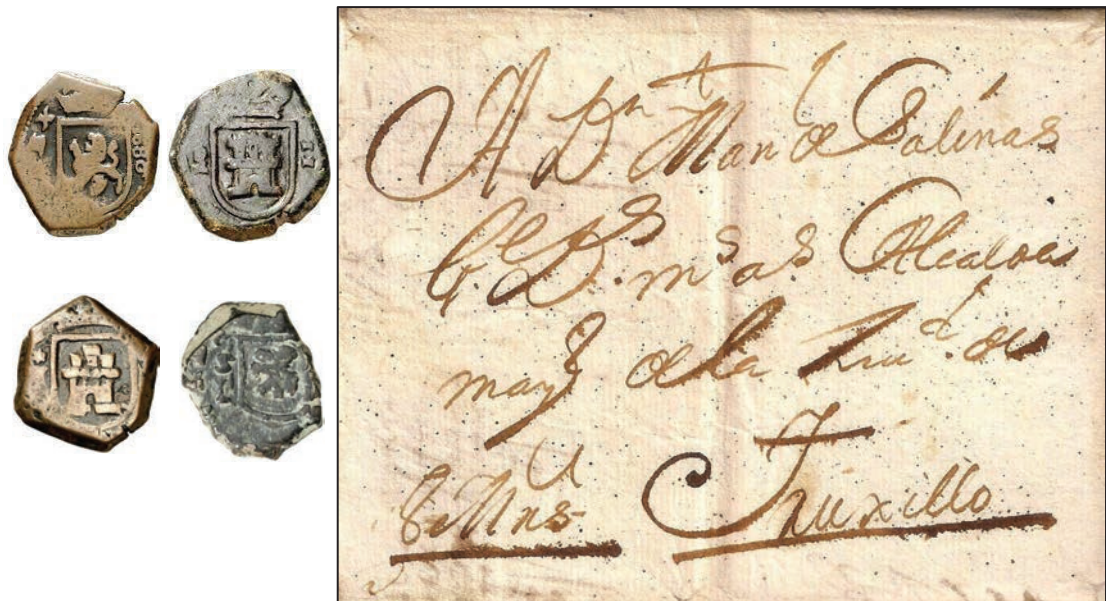 A Dn Man de Salinas
ge Ds ms as Alcalde
mayr de la Ziud de
Truxillo
8 Mrs